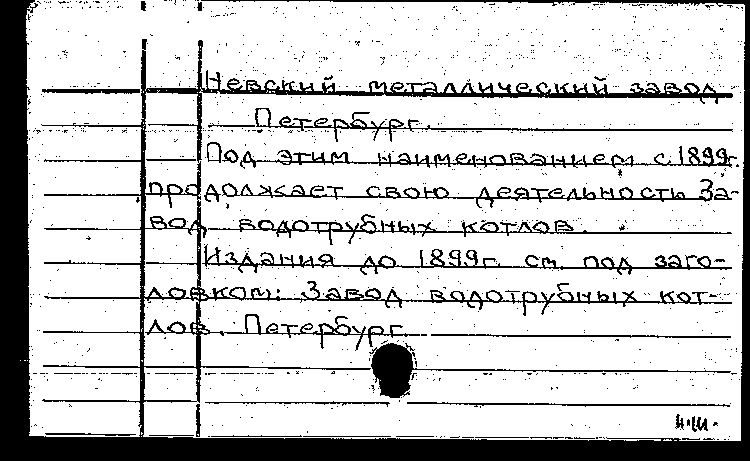 Невский металлический завод
Петербург.
Под этим наименованием с 1899г.
продолжает свою деятельность За-
вод водотрубных котлов.
Издания до 1899г. см. под заго-
ловком: Завод водотрубных кот-
лов. Петербург.
н.ш.